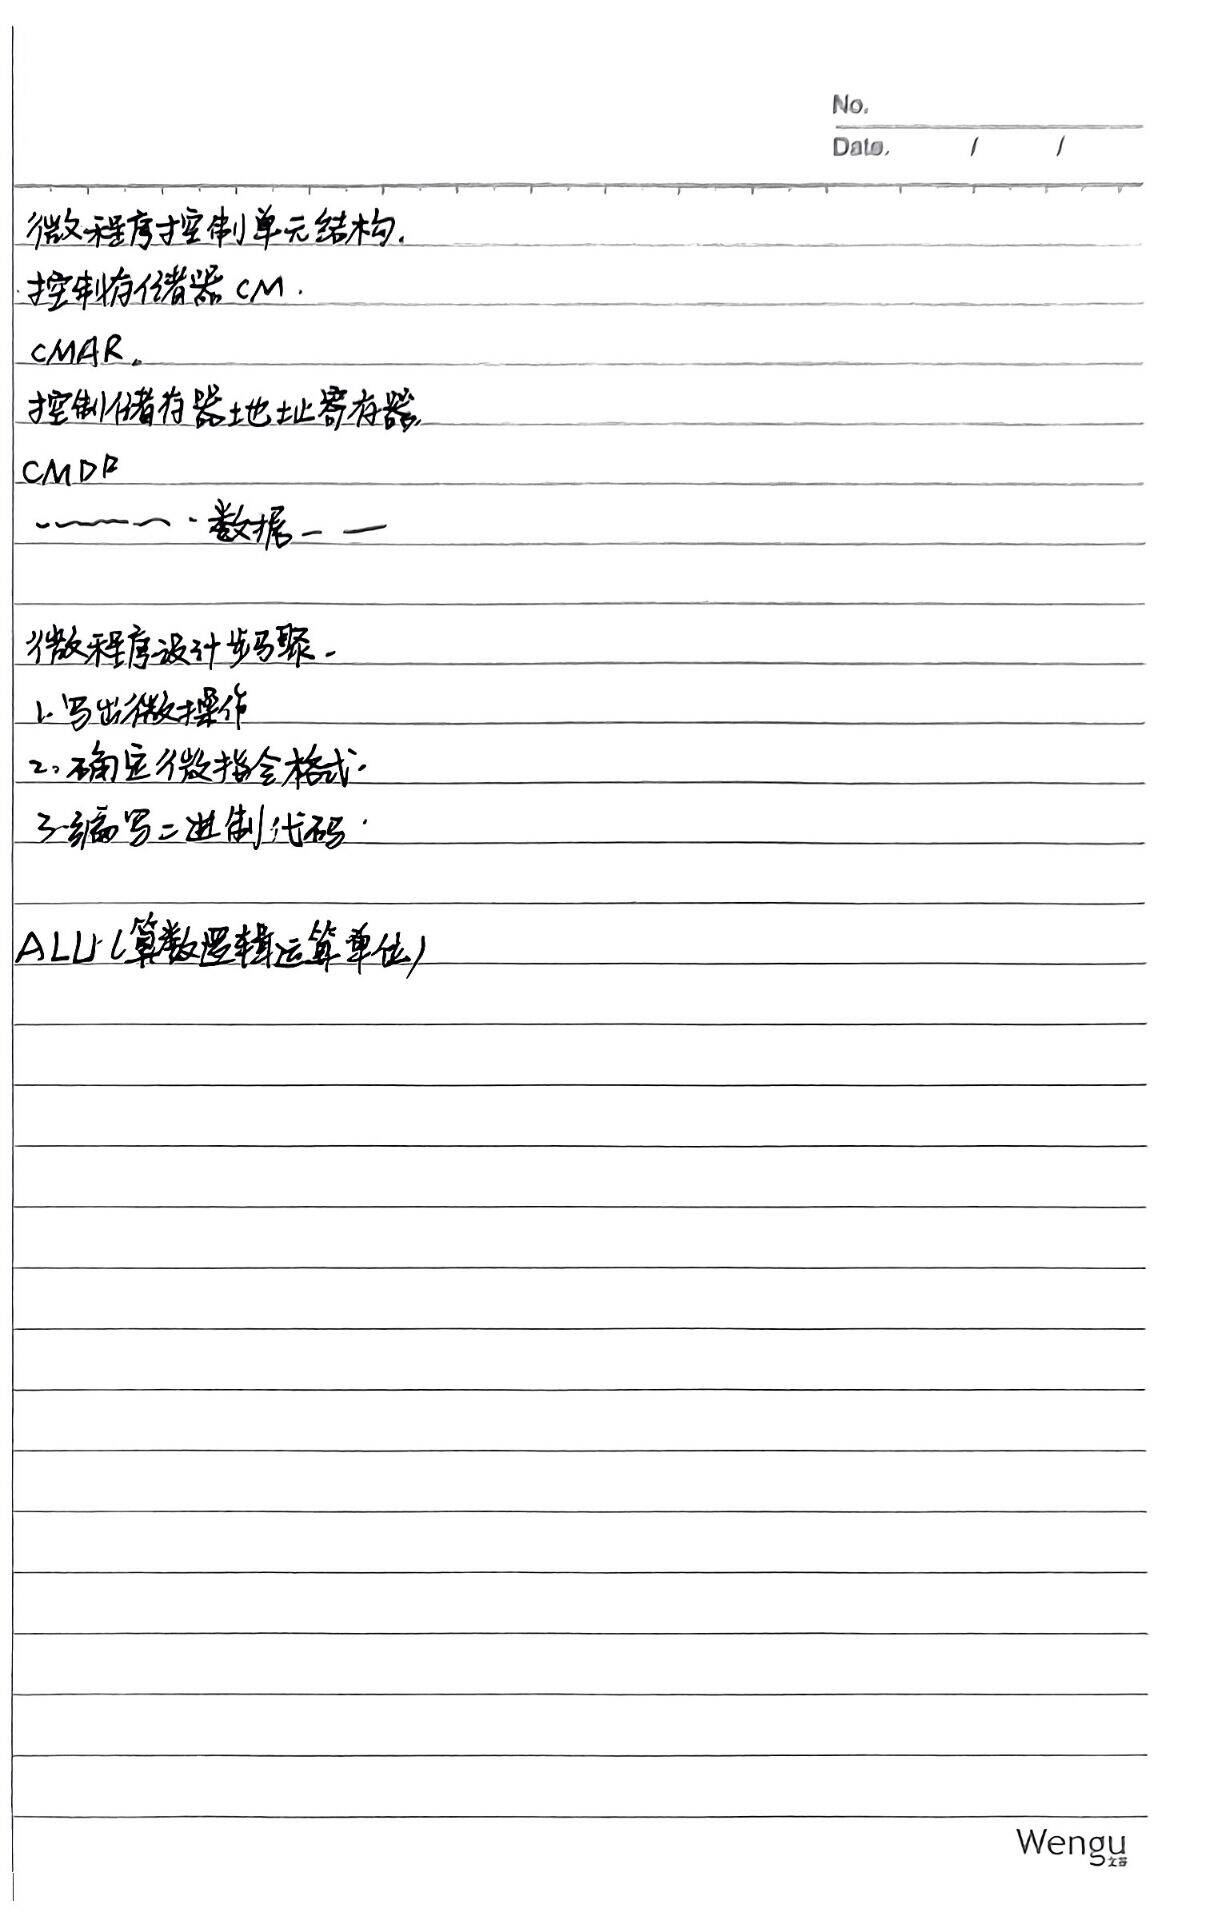 No.
Date. / /
微程序控制单元结构.
控制存储器 CM.
CMAR.
控制储存器地址寄存器.
CMDR
数据
微程序设计步骤.
1. 写出微操作
2. 确定微指令格式.
3. 编写二进制代码.
ALU (算数逻辑运算单位)
Wengu
文谷